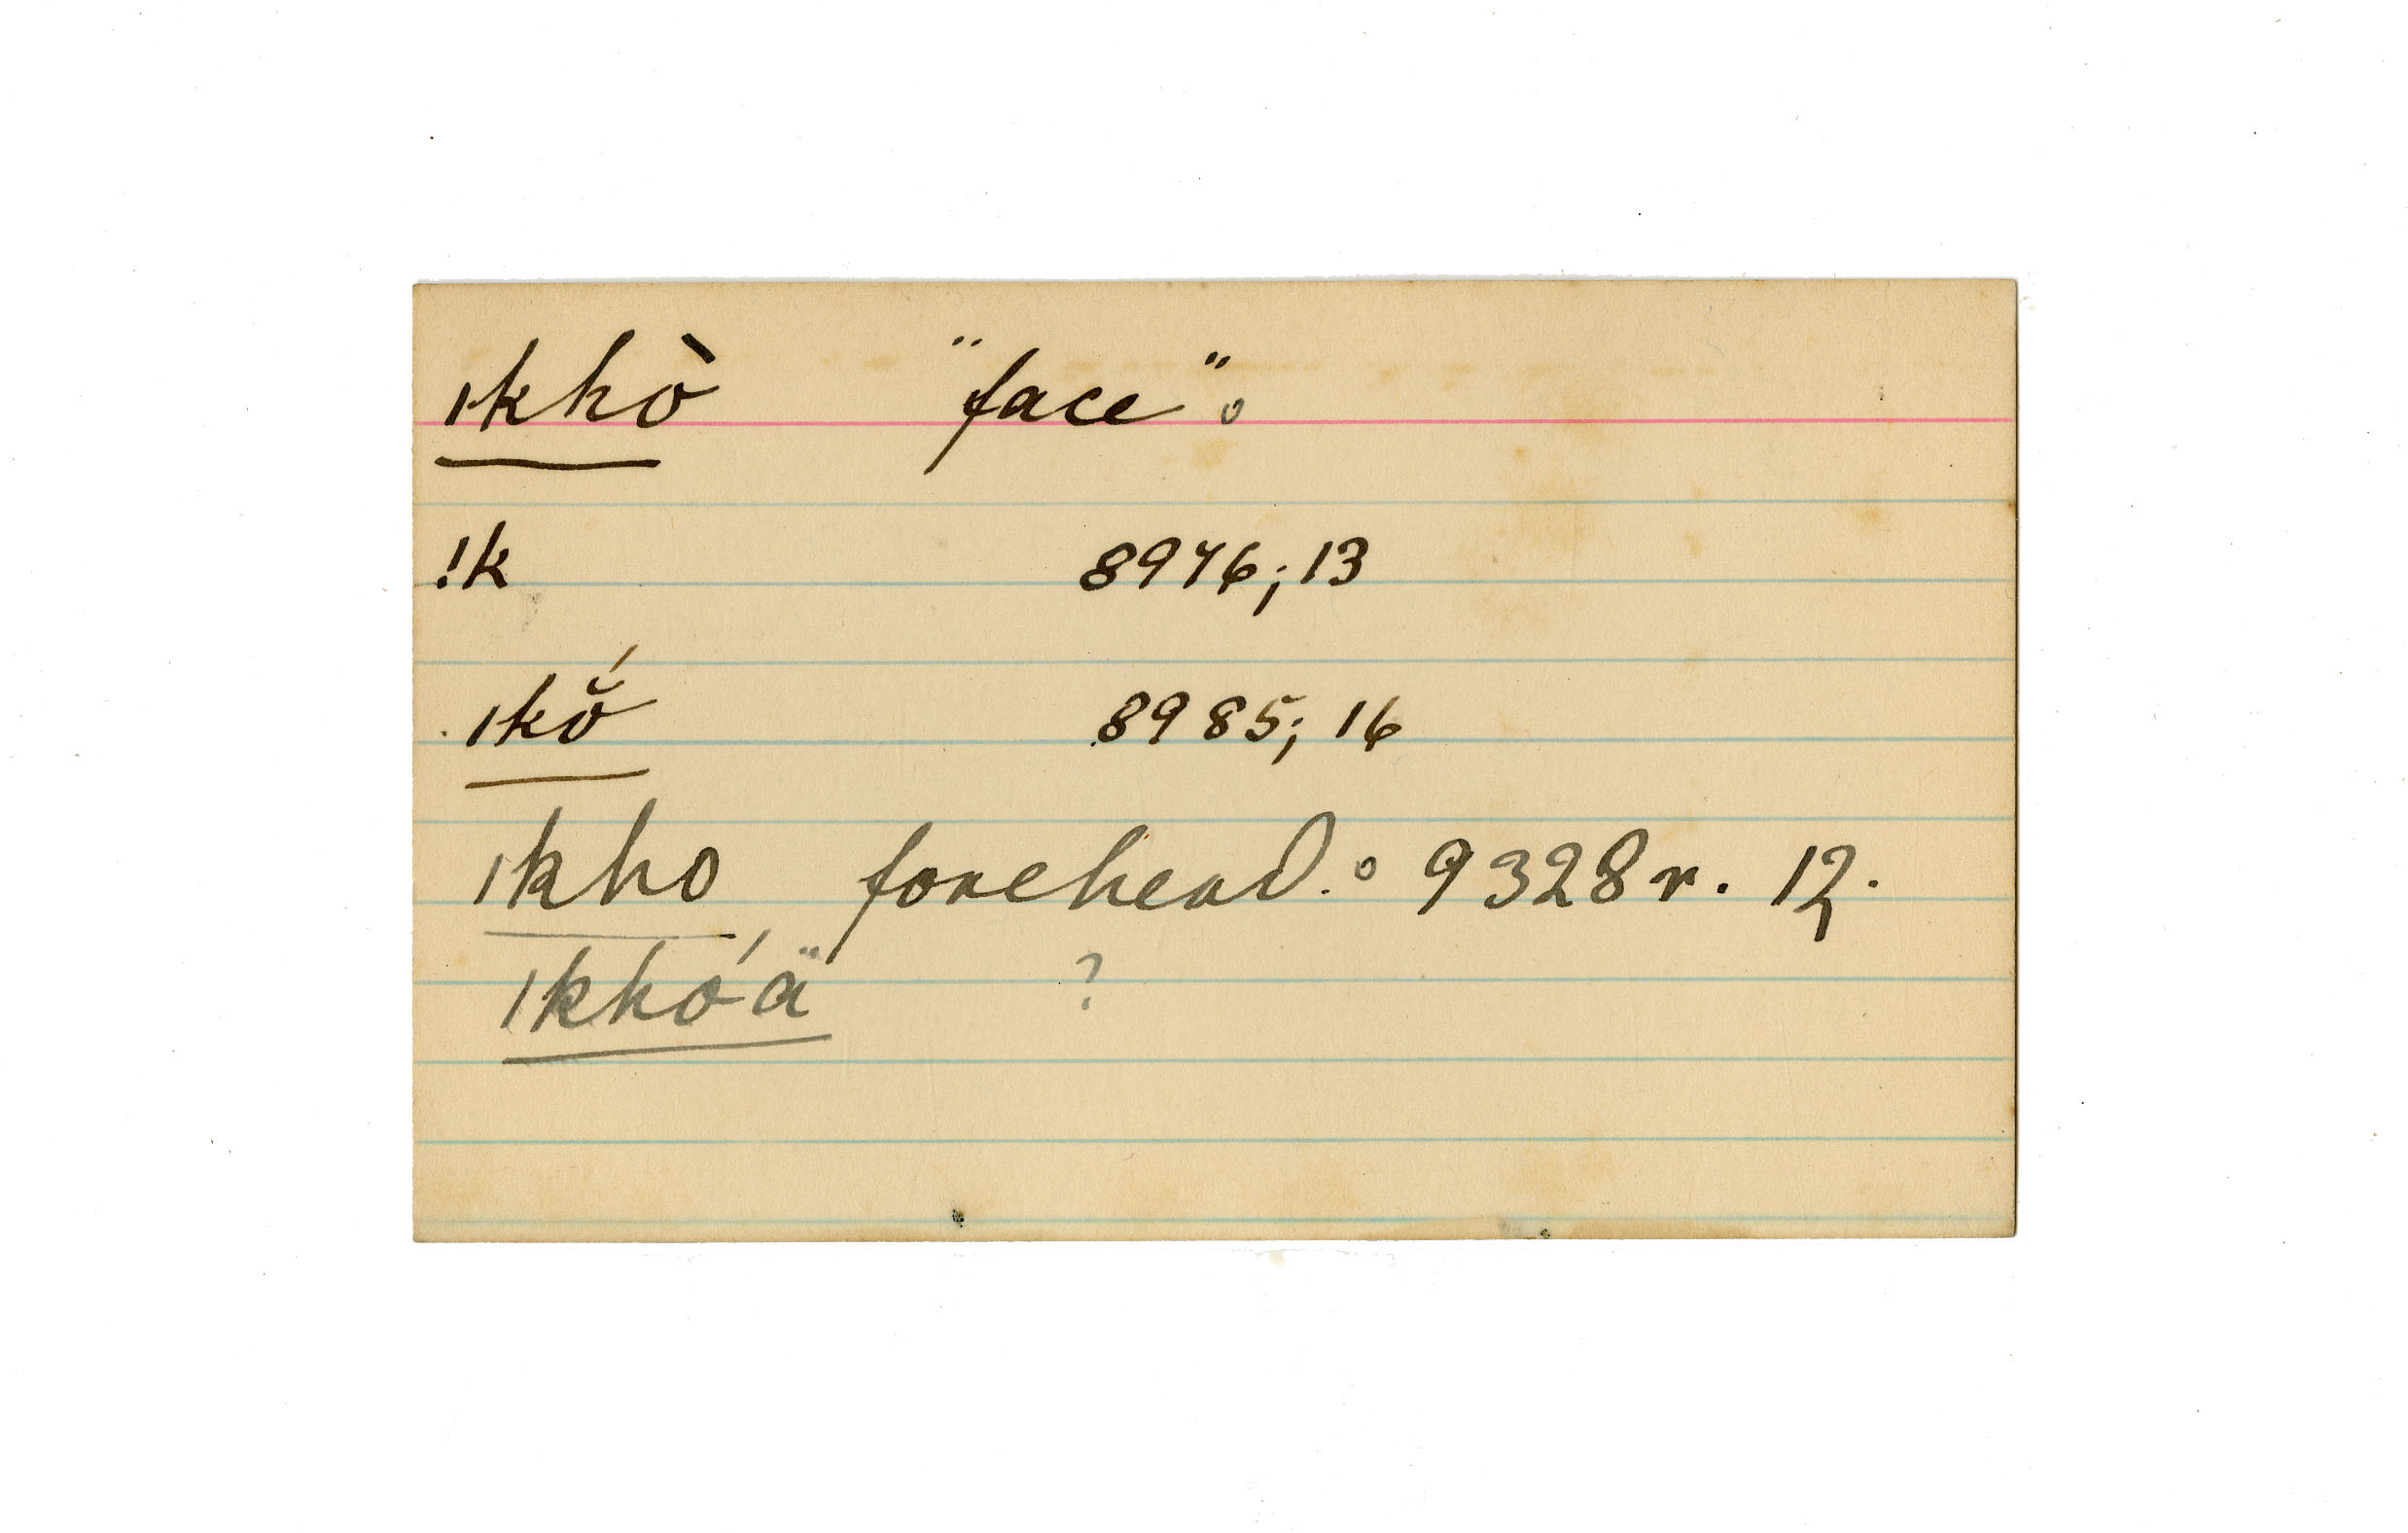 ıkhò "face".
!k 8976; 13
ıkŏ́ 8985; 16
ıkho forehead. ° 9328 r. 12.
ıkhóä ?